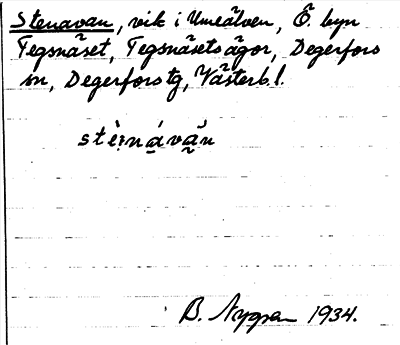 Stenavan, vik i Umeälven, Ö. byn
Tegsnäset, Tegsnäsets ägor, Degerfors
sn, Degerfors tg, Västerb. l.
stè:nává̀n
B. Nygren 1934.